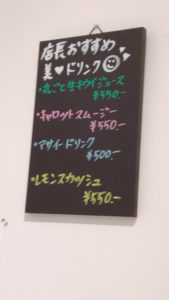 店長おすすめ
美♥ドリンク
・丸ごと生キウイジュース
¥550.-
・キャロットスムージー
¥550.-
・アサイードリンク
¥500.-
・レモンスカッシュ
¥550.-